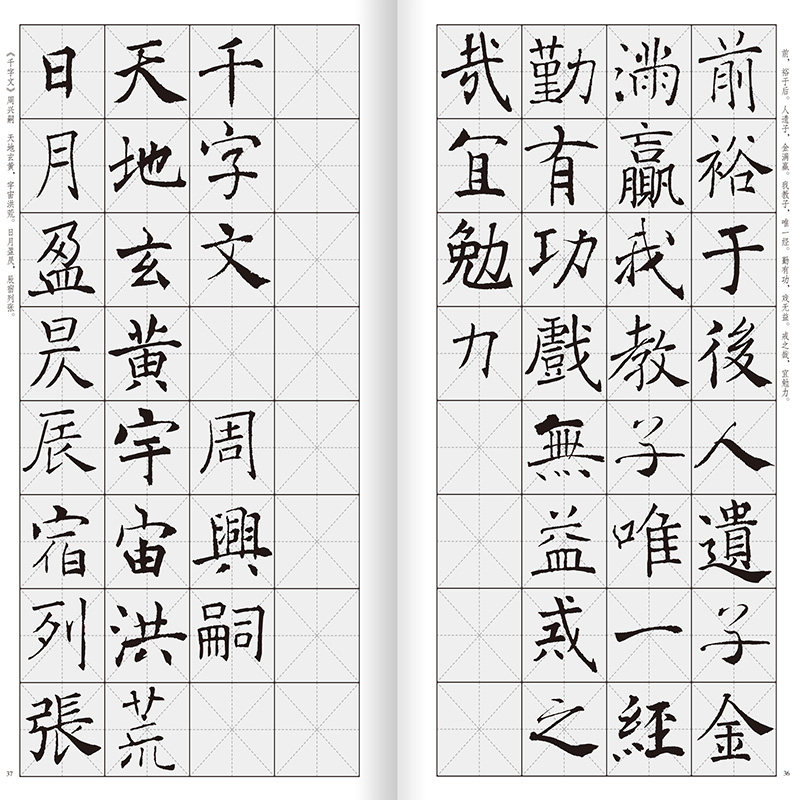 前，裕于后。人遗子，金满赢。我教子，唯一经。勤有功，戏无益。戒之哉，宜勉力。
前裕于後人遺子金
滿贏我教子唯一經
勤有功戲無益戒之
哉宜勉力
36
千字文 周興嗣
天地玄黃宇宙洪荒
日月盈昃辰宿列張
《千字文》周兴嗣 天地玄黄，宇宙洪荒。日月盈昃，辰宿列张。
37